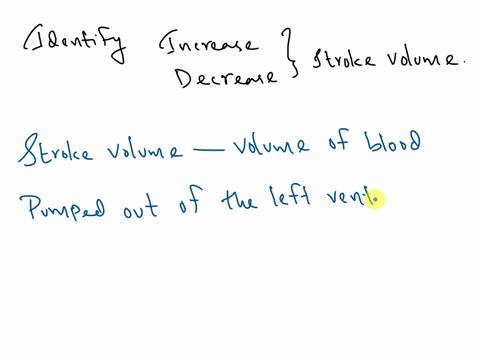 Identify Increase } Stroke volume.
Decrease
Stroke volume — volume of blood
Pumped out of the left vent